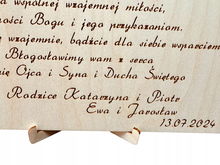 wspólnej wzajemnej miłości,
ności Bogu i jego przykazaniom.
ę wzajemnie, bądźcie dla siebie wsparciem
Błogosławimy wam z serca
ię Ojca i Syna i Ducha Świętego
Rodzice Katarzyna i Piotr
Ewa i Jarosław
13.07.2024